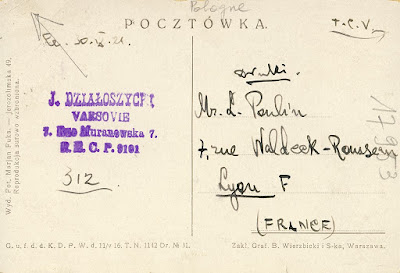 Pologne
POCZTÓWKA.
T.C.V.
Druki.
J. DZIAŁOSZYCKI
VARSOVIE
7. Rue Muranowska 7.
R.E.C.P. 9191
312
Mr. L. Paulin
7, rue Waldeck-Rousseau
Lyon F
(FRANCE)
Wyd. Fot. Marjan Fuks. — Jerozolimska 49.
Reprodukcja surowo wzbroniona.
G. u. f. d. d. K. D. P. W. d. 12/v 16. T. N. 1142 Dr. № 31.
Zakł. Graf. B. Wierzbicki i S-ka, Warszawa.